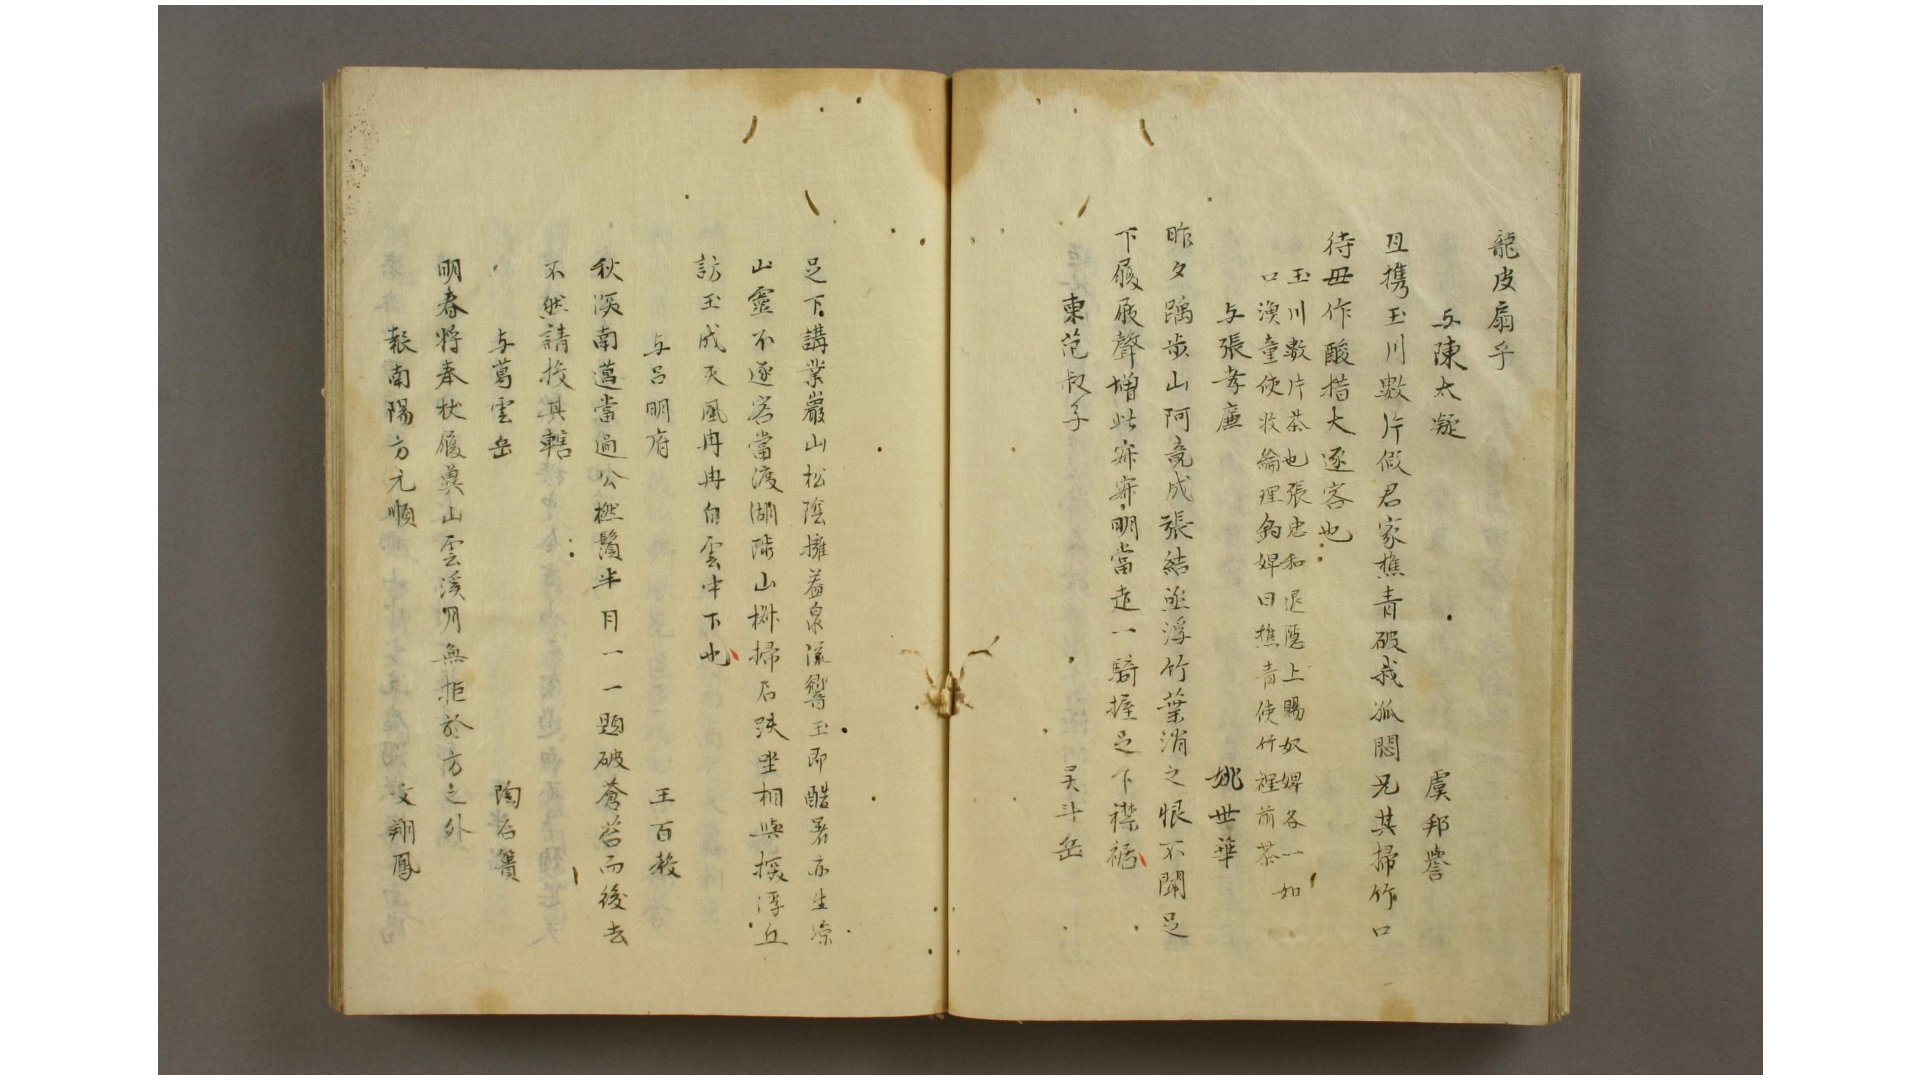 龍皮扇乎
与陳太凝 虞邦譽
且携玉川數片假君家樵青破我孤悶兄其掃竹口
待毋作酸措大逐客也
玉川數片茶也張忠和退隱上賜奴婢各一如
口漁童使收綸理釣婢曰樵青使竹裡前茶
与張孝廉 姚世華
昨夕踽步山阿竟成張結丞浮竹葉消之恨不聞足
下屐聲增此寂寂明當走一騎握足下襟裾
東范叔子 吴斗岳
足下講業巖山松陰擁蓋泉流響玉即酷暑亦生凉
山靈不逐客當渡湖陟山椒掃石趺坐相與揆浮丘
訪玉成天風冉冉自雲中下也
与呂明府 王百穀
秋深南邁當過公樾鬢半月一一題破蒼苔而後去
不然請投其轄
与葛雲岳 陶石簣
明春將奉杖屨奠山雲溪月無拒於方之外
報南陽方元順 文翔鳳